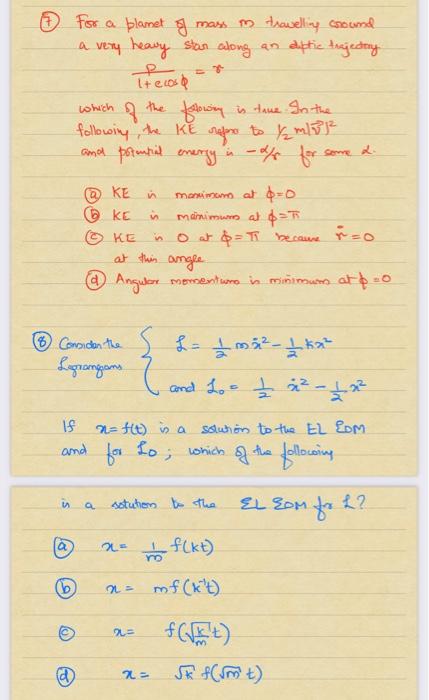 7 For a planet of mass m travelling around
a very heavy star along an eliptic trajectory
p / 1+ecosϕ = r
which of the following is true. In the
following, the KE refers to 1/2 m|v⃗|²
and potential energy is -α/r for some α.
(a) KE is maximum at ϕ=0
(b) KE is minimum at ϕ=π
(c) KE is 0 at ϕ=π because ṙ=0
at this angle
(d) Angular momentum is minimum at ϕ=0
8 Consider the
Lagrangians
{ L = 1/2 mẋ² - 1/2 kx²
and L₀ = 1/2 ẋ² - 1/2 x²
If x=f(t) is a solution to the EL EOM
and for L₀; which of the following
is a solution to the EL EOM for L?
(a) x = 1/m f(kt)
(b) x = mf(k⁻¹t)
(c) x = f(√k/m t)
(d) x = √k f(√m t)